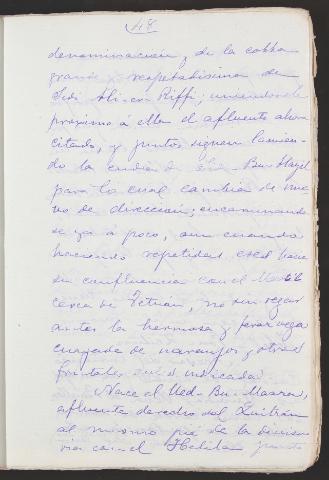 48
denominacion, de la cobba
grande y respetadisima de
Sidi Ali-er-Riffi; uniendosele
proximo á ella el afluente ahora
citado, y juntos siguen lamien-
do la Bu-Hayel
para la cual cambia de nue-
vo de direccion; encaminando
se ya á poco, aun cuando
haciendo repetidas eses, hacia
su confluencia con el
cerca de Tetuán, no sin regar
antes la hermosa y feraz vega
cuajada de naranjos y otros
frutales
Nace el Ued-Bu-Maaras,
afluente derecho del Quitzán
al mismo pié de la diviso-
ria con el Helila junto